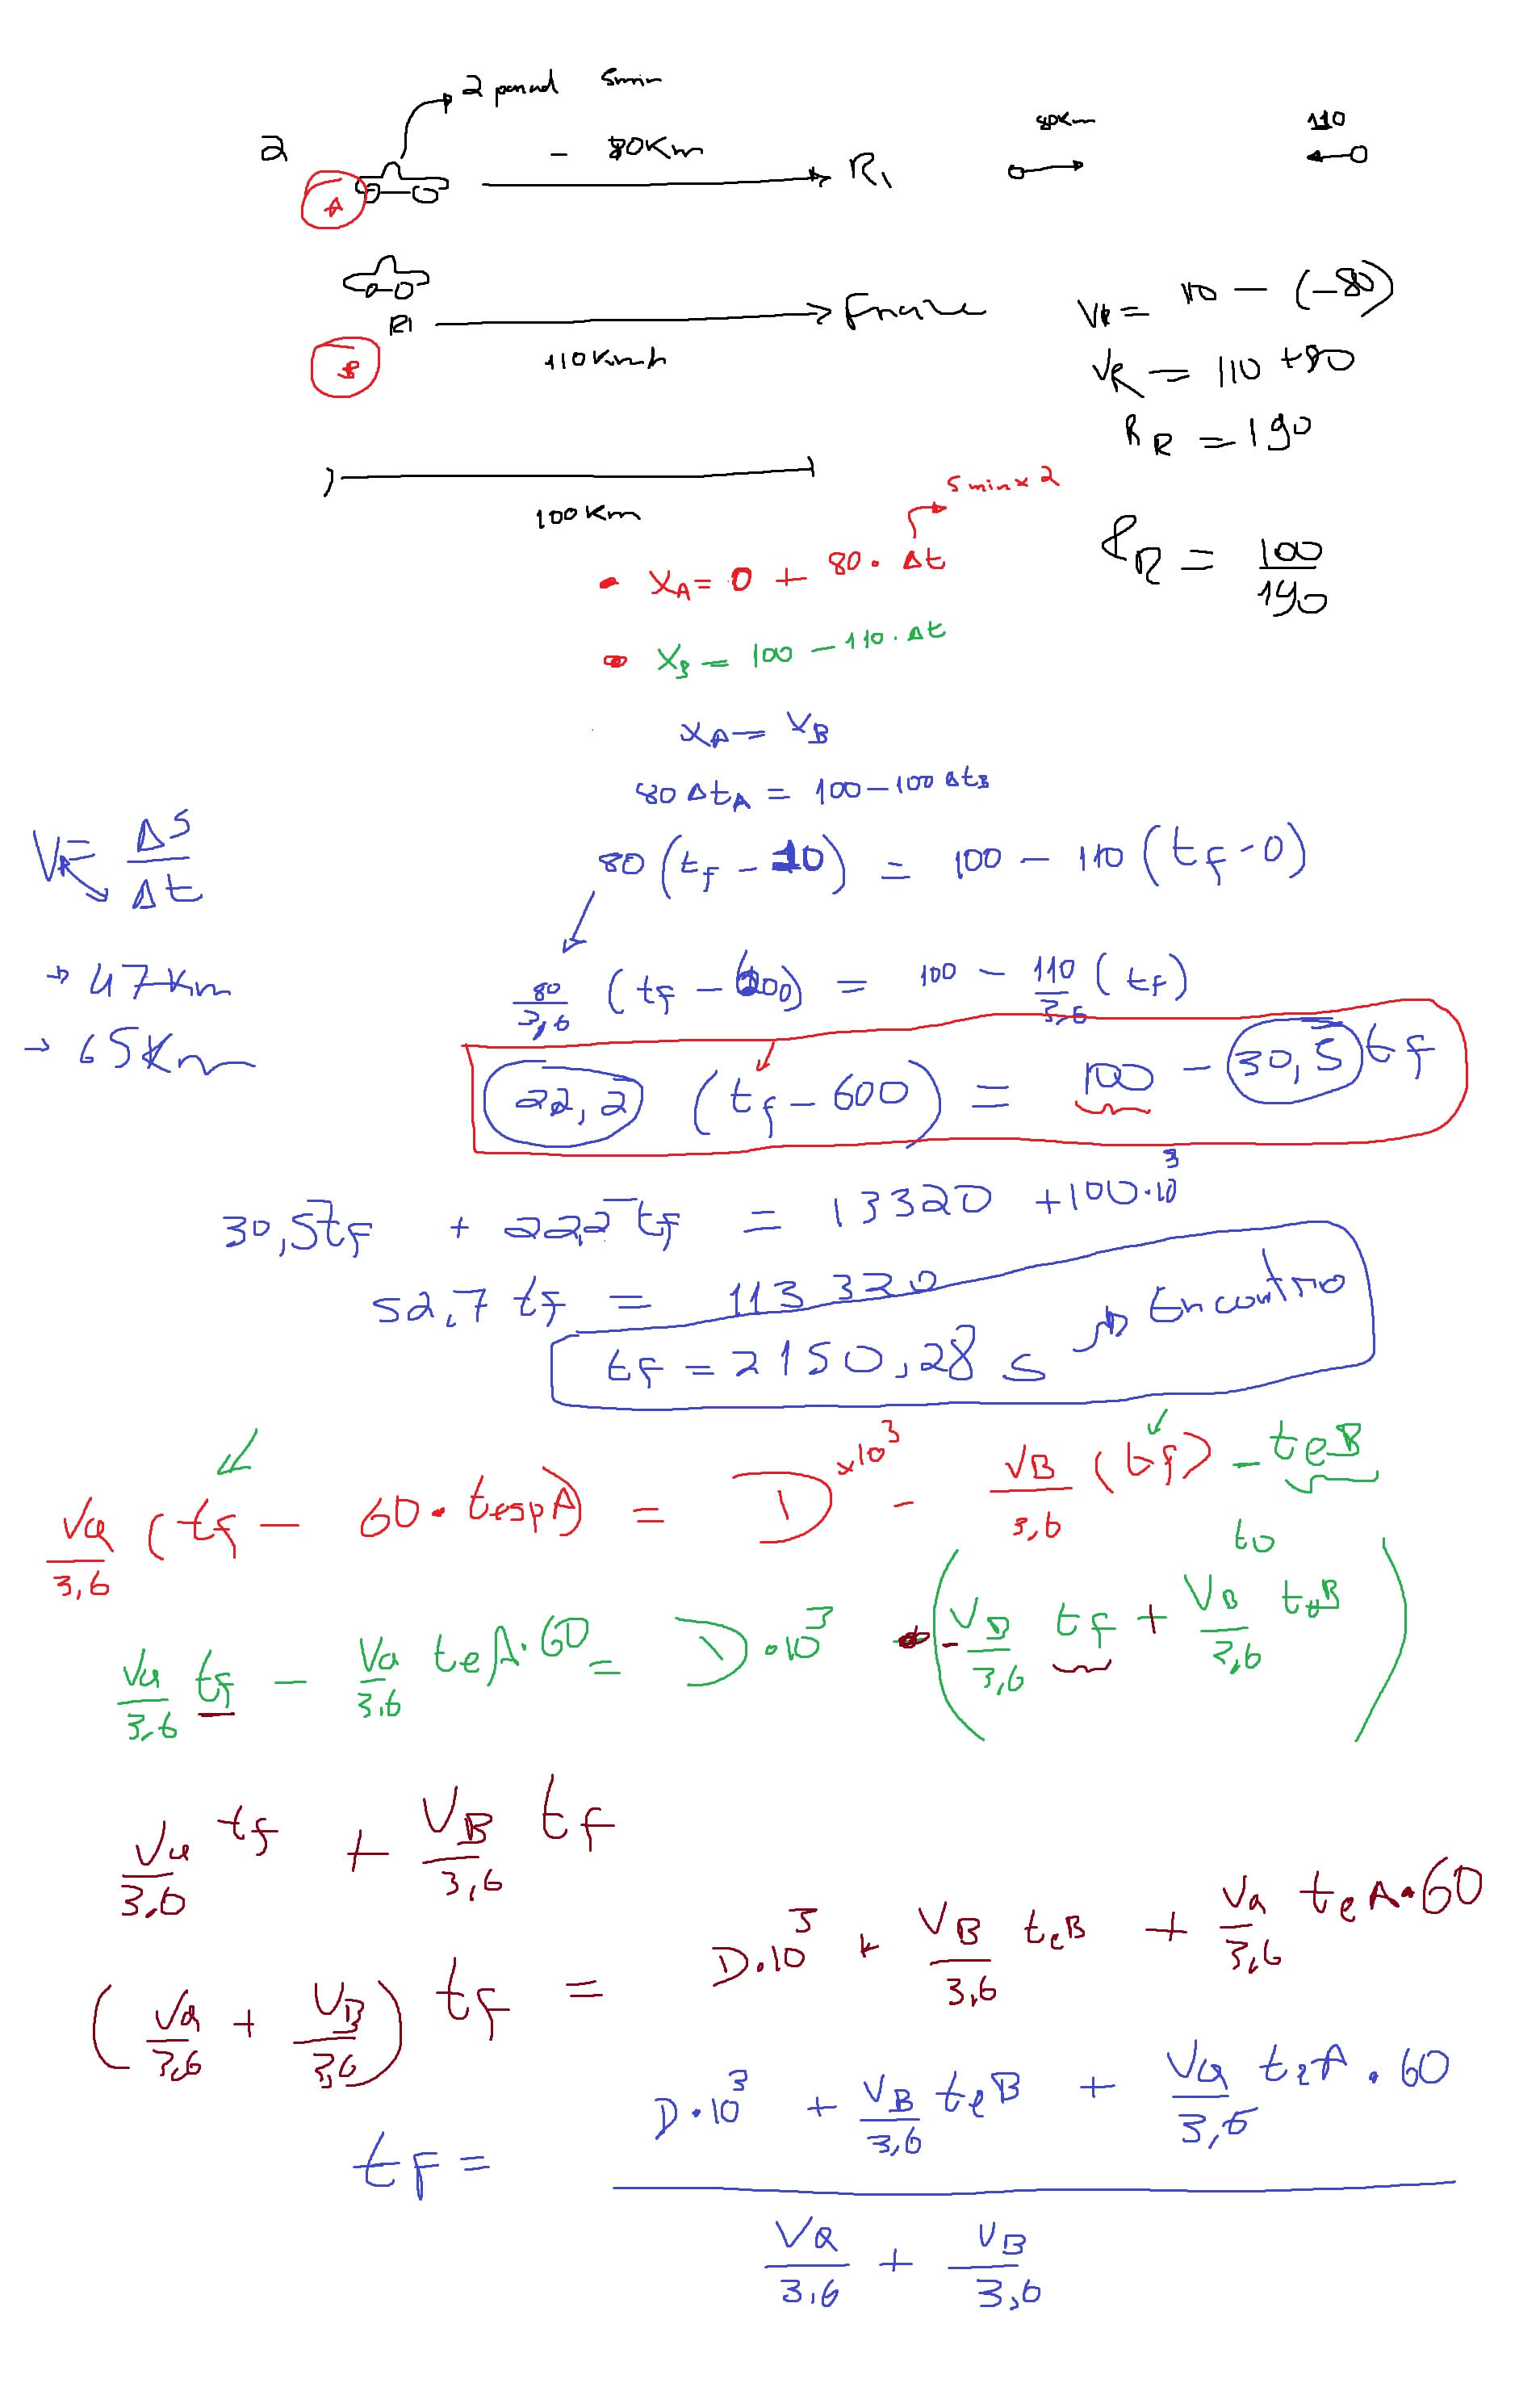 2 5min
80Km 110
2 - 80Km R1
A
R1
110Kmh
B
VR = 110 - (-80)
VR = 110 + 80
RR = 190
100Km
5min x 2
XA = 0 + 80. Δt
tR = 100/190
XB = 100 - 110. Δt
XA = XB
80 ΔtA = 100 - 100 ΔtB
VR = ΔS/Δt
80 (tf - 10) = 100 - 110 (tf - 0)
→ 47Km
80/3,6 (tf - 600) = 100 - 110/3,6 (tf)
→ 65Km
22,2 (tf - 600) = 100 - 30,5 tf
30,5tf + 22,2 tf = 13320 + 100.10³
52,7 tf = 113 320
tf = 2150,28 s → Encontro
Va/3,6 (tf - 60. tespA) = D x10³ - VB/3,6 (tf) - teB
to
Va/3,6 tf - Va/3,6 teA.60 = D.10³ - (VB/3,6 tf + VB/3,6 teB)
Va/3,6 tf + VB/3,6 tf
(Va/3,6 + VB/3,6) tf = D.10³ + VB/3,6 teB + Va/3,6 teA.60
tf = (D.10³ + VB/3,6 teB + Va/3,6 teA.60) / (Va/3,6 + VB/3,6)